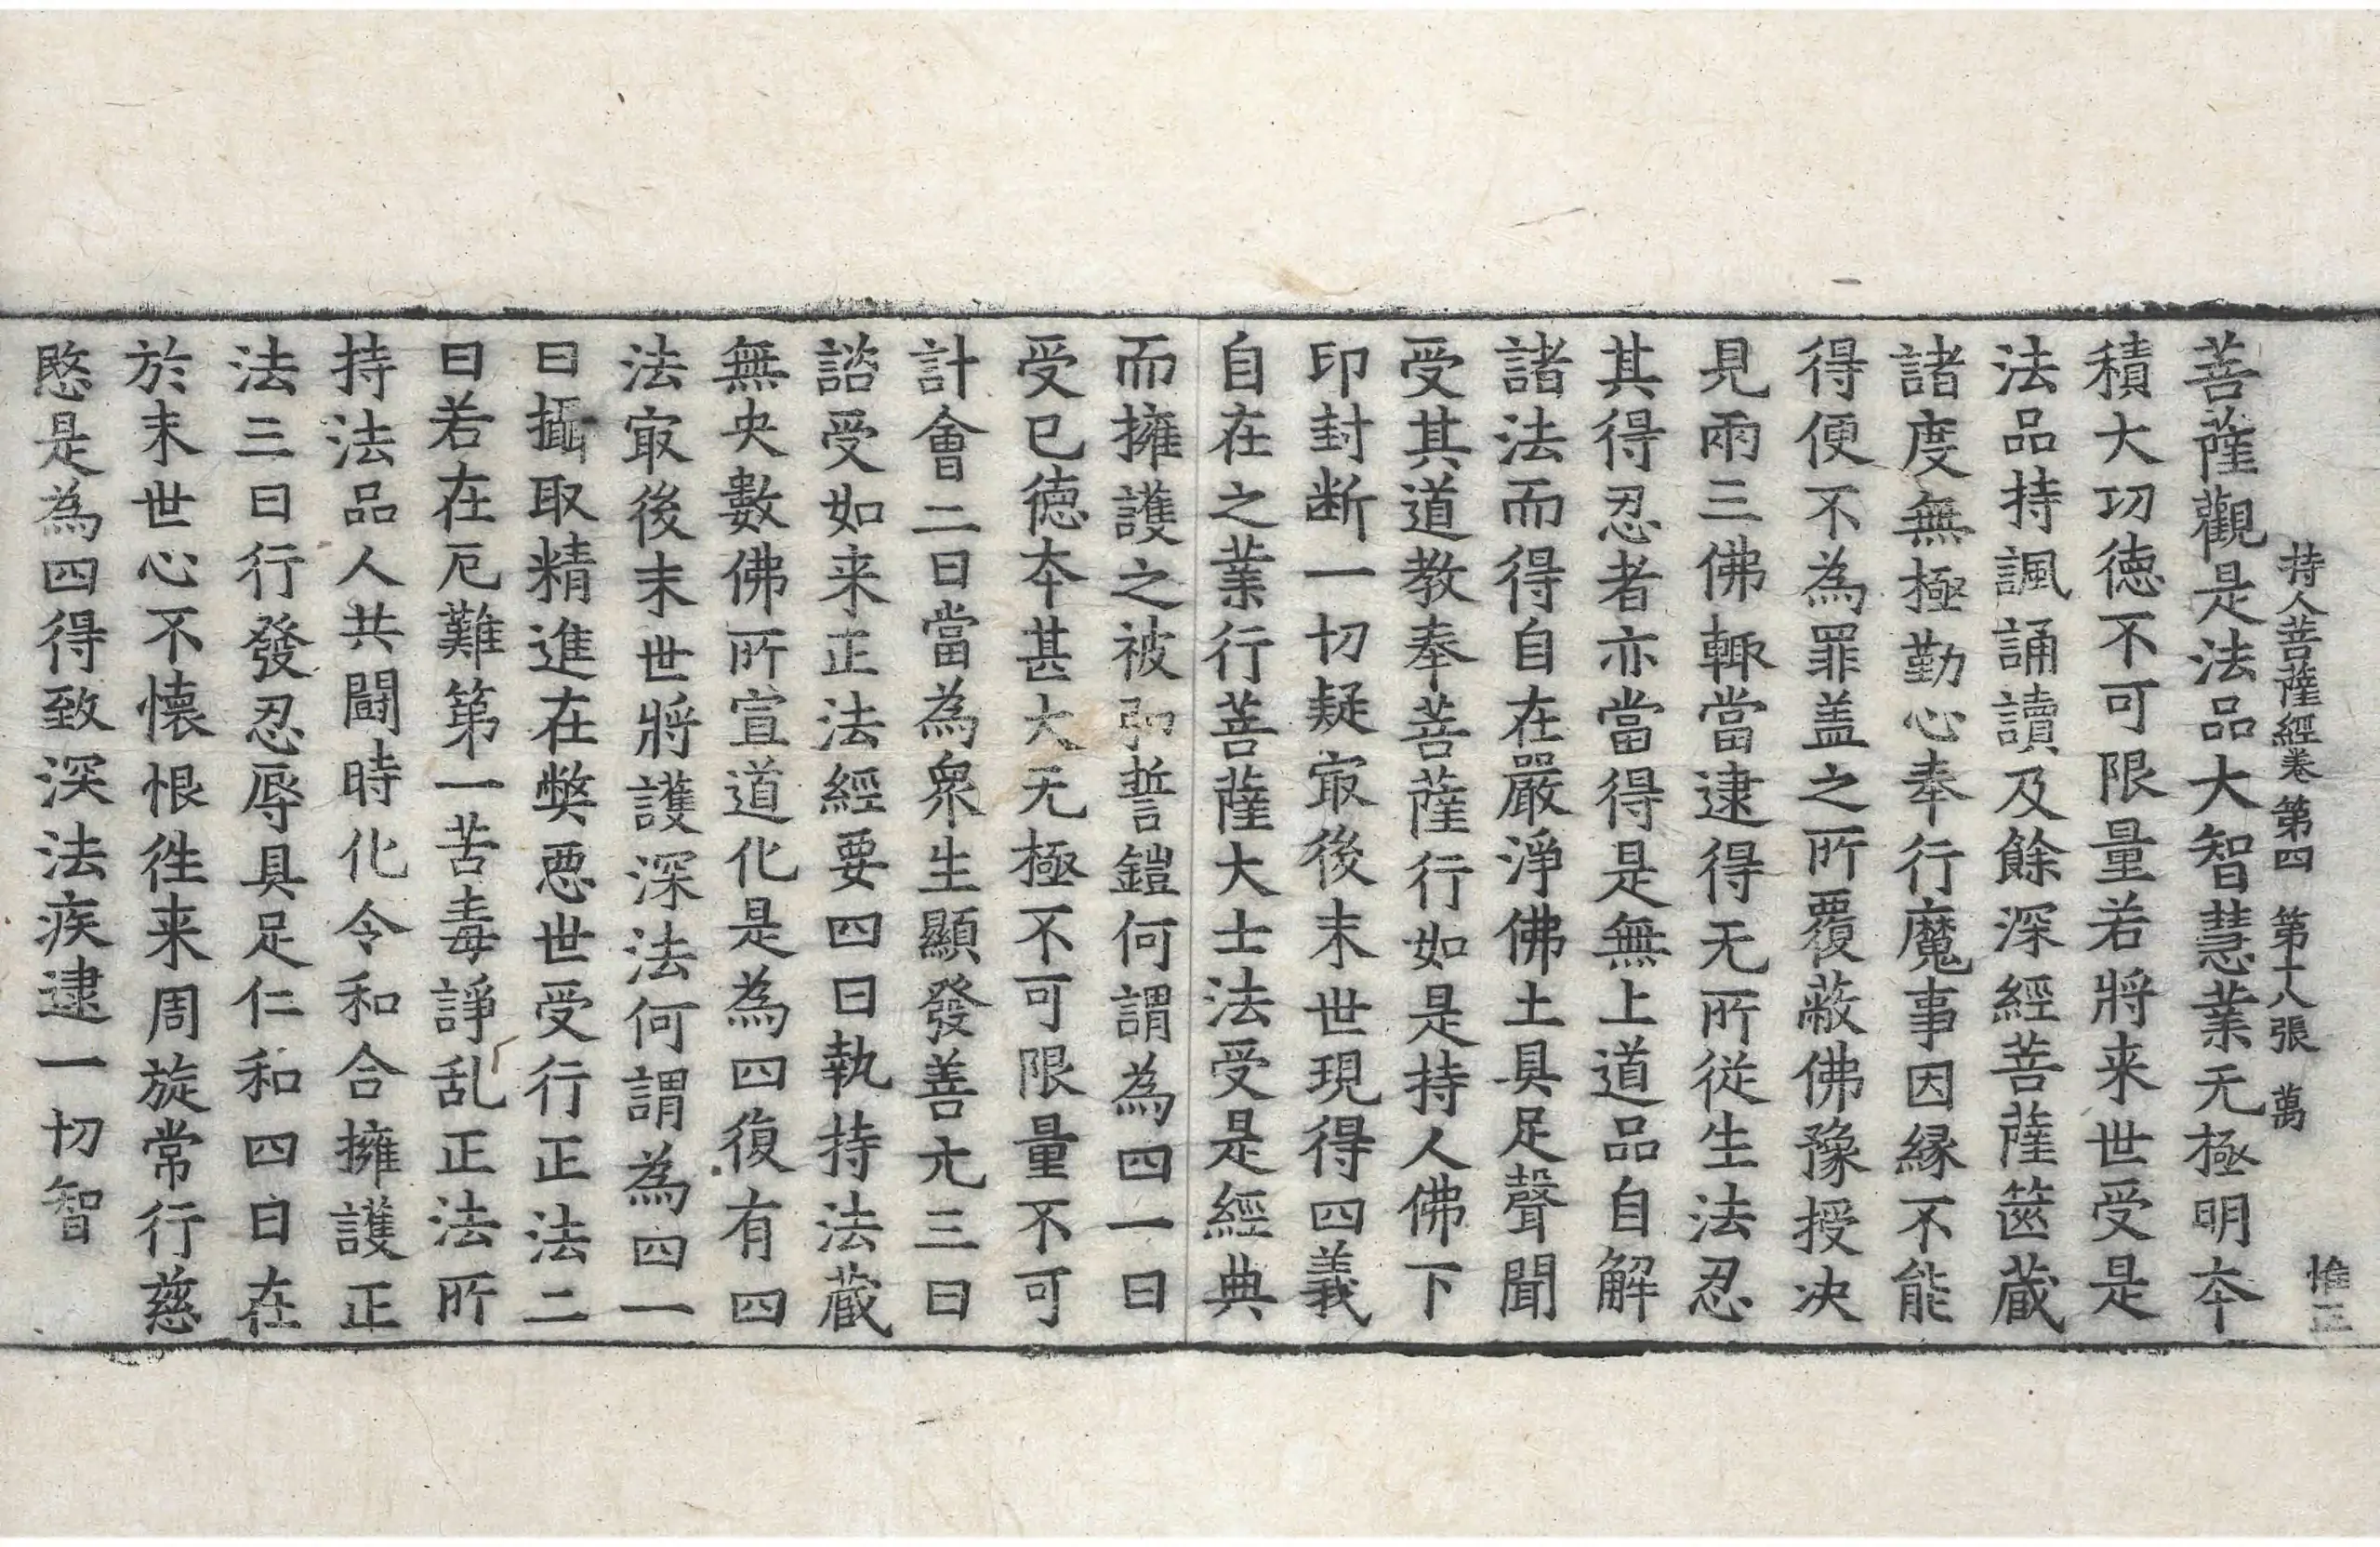 持人菩薩經卷第四 第十八張 萬
惟正
菩薩觀是法品大智慧業无極明夲
積大功德不可限量若將来世受是
法品持諷誦讀及餘深經菩薩篋蔵
諸度無極勤心奉行魔事因縁不能
得便不為罪盖之所覆蔽佛豫授决
見兩三佛輒當逮得无所從生法忍
其得忍者亦當得是無上道品自解
諸法而得自在嚴淨佛土具足聲聞
受其道教奉菩薩行如是持人佛下
印封断一切疑㝡後末世現得四義
自在之業行菩薩大士法受是經典
而擁護之被弘誓鎧何謂為四一曰
受已德夲甚大无極不可限量不可
計會二曰當為衆生顯發善元三曰
諮受如来正法經要四曰執持法蔵
無央數佛所宣道化是為四復有四
法㝡後末世將護深法何謂為四一
曰攝取精進在弊惡世受行正法二
曰若在厄難第一苦毒諍乱正法所
持法品人共鬪時化令和合擁護正
法三曰行發忍辱具足仁和四曰在
於末世心不懐恨徃来周旋常行慈
愍是為四得致深法疾逮一切智